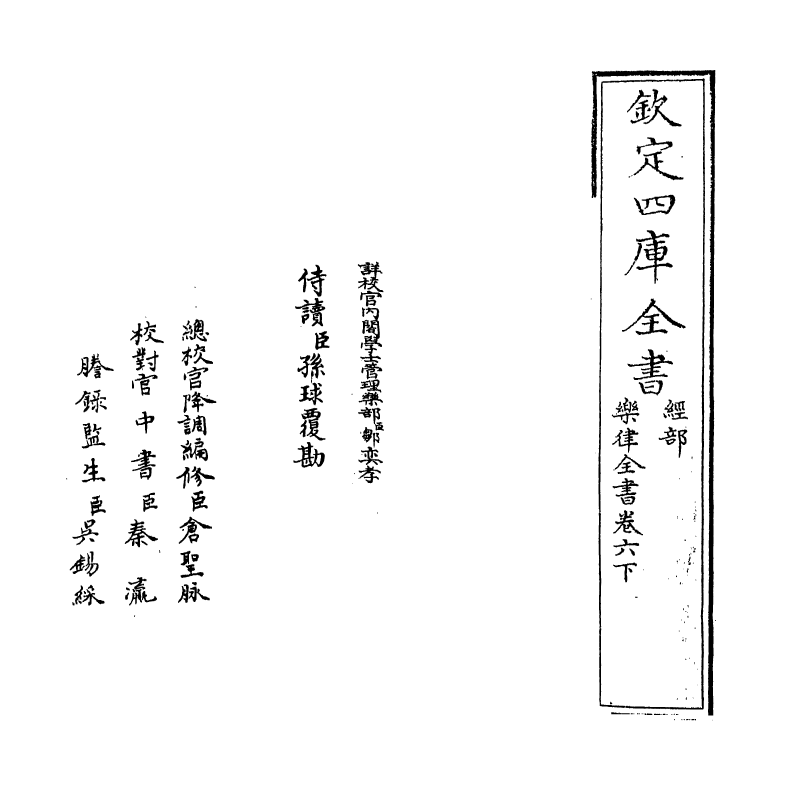 欽定四庫全書
經部
樂律全書卷六下
詳校官內閣學士管理樂部臣鄒奕孝
侍讀臣孫球覆勘
總校官降調編修臣倉聖脉
校對官中書臣秦瀛
謄錄監生臣吳錫綵